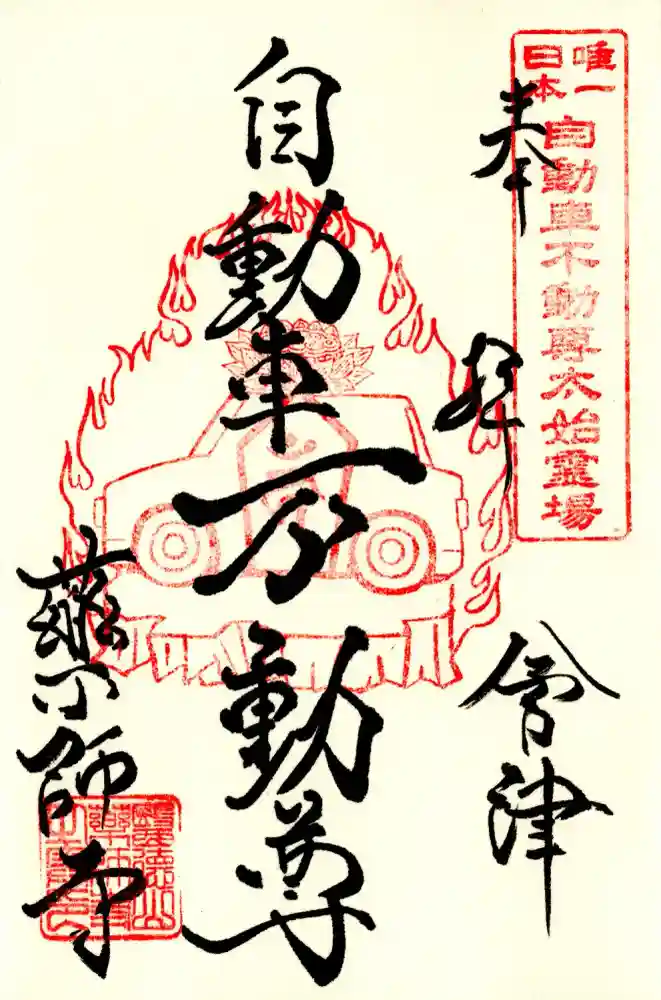 唯一
日本
自動車不動尊太始霊場
奉拝
會津
自動車不動尊
薬師寺